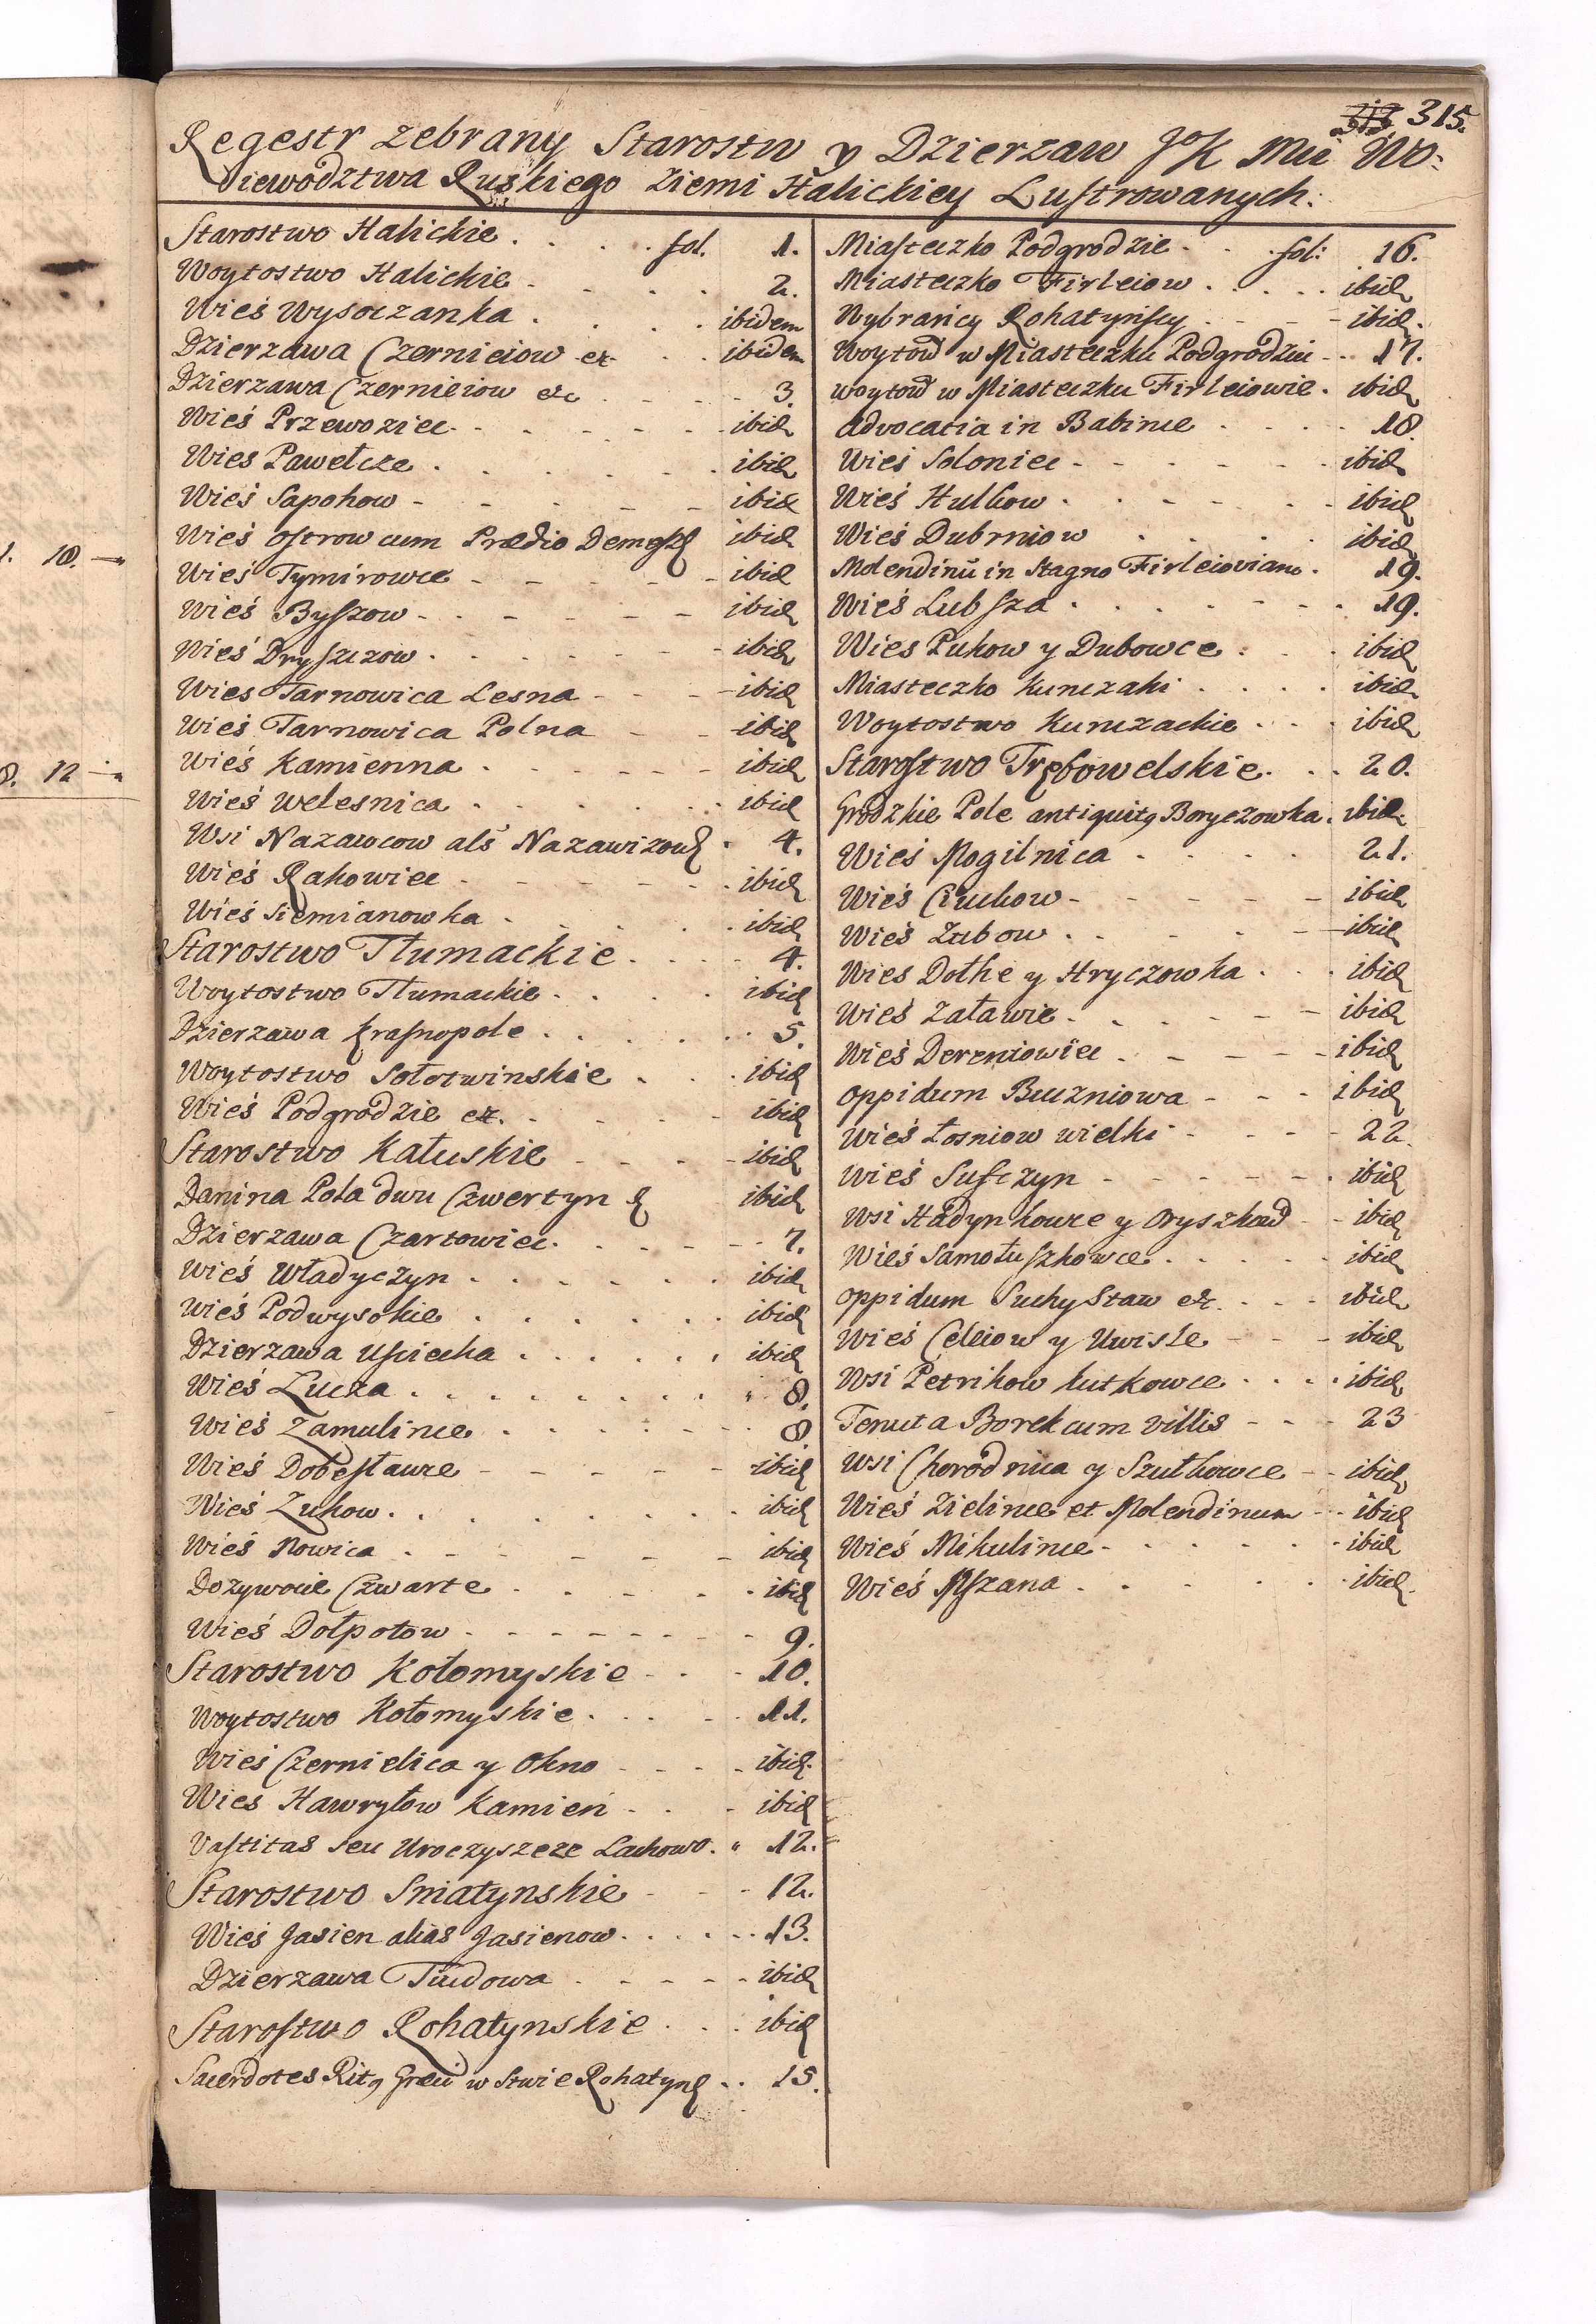 315.
Regestr zebrany Starostw y Dzierzaw JoK Mci Wo:
iewodztwa Ruskiego Ziemi Halickiey Lustrowanych:
Starostwo Halickie . . . . fol. 1.
Woytostwo Halickie . . . . 2.
Wieś Wysoczanka . . . . ibidem
Dzierzawa Czernieiow etc . . ibidem
Dzierzawa Czernieiow etc . . . 3.
Wieś Przewoziec - - - - - ibid
Wies Pawełcze . . . . . ibid
Wieś Sapohow - - - - - ibid
Wieś Ostrow cum Prædio Demesz ibid
Wieś Tymirowce - - - - - ibid
Wieś Byszow - - - - - ibid
Wieś Dryszczow . . . . . ibid
Wies Tarnowica Lesna - - - ibid
Wieś Tarnowica Polna - - ibid
Wieś Kamienna . . . . . ibid
Wieś Welesnica . . . . . ibid
Wsi Nazawcow als Nazawizow . 4.
Wieś Rakowiec - - - - - ibid
Wieś Siemianowka . . . . ibid
Starostwo Tłumackie . . . . 4.
Woytostwo Tłumackie . . . . ibid
Dzierzawa Krasnopole . . . . . 5.
Woytostwo Sołotwinskie . . . ibid
Wieś Podgrodzie etc. . . . . ibid
Starostwo Kałuskie - - - - ibid
Danina Pola dwu Czwertyn ibid
Dzierzawa Czartowiec . . . . . 7.
Wieś Władyczyn . . . . . ibid
Wieś Podwysokie . . . . . ibid
Dzierzawa Uściecka . . . . . ibid
Wieś Lucza . . . . . . . 8.
Wieś Zamulince . . . . . . 8.
Wieś Dobestawce - - - - - ibid
Wieś Zukow . . . . . . . ibid
Wieś Nowica . - - - - - ibid
Dozywocie Czwarte . . . . . ibid
Wieś Dołpotow - - - - - - 9.
Starostwo Kołomyskie - . - 10.
Woytostwo Kołomyskie . . . . 11.
Wieś Czernielica y Okno - - - ibid.
Wies Hawryłow Kamień - . - ibid
Vastitas seu Uroczyszcze Lachowo . 12.
Starostwo Sniatynskie - - - 12.
Wieś Jasien alias Jasienow . . . . 13.
Dzierzawa Tudowa . - - - - ibid
Starostwo Rohatynskie . . . ibid
Sacerdotes Ritg Græci w Stwie Rohatyn . . 15.
Miasteczko Podgrodzie . . fol: 16.
Miasteczko Firleiow . . . . ibid
Wybrańcy Rohatyńscy - - - ibid.
Woytow w Miasteczku Podgrodziu - . 17.
Woytow w Miasteczku Firleiowie . ibid
Advocatia in Babince . . . . 18.
Wieś Soloniec - - - - - ibid
Wieś Hulkow . . . . . . ibid
Wieś Dubrniow . . . . ibid
Molendinū in Stagno Firleioviano . 19.
Wieś Lubsza . . . . . . 19.
Wies Pukow y Dubowce . . . ibid
Miasteczko Kunczaki . . . . ibid
Woytostwo Kunczackie . . . ibid
Starostwo Trębowelskie . . . 20.
Grodzkie Pole antiquitg Boryczowka . ibid
Wieś Mogilnica . . . . 21.
Wieś Ciuchow - - - - - ibid
Wieś Zubow . . . . . ibid
Wies Dołhe y Hryczowka . . . ibid
Wieś Załawie . . . . - - ibid
Wieś Dereniowiec . - - - - ibid
Oppidum Buczniowa - - - ibid
Wieś Łosniow wielki - - - - 22.
Wieś Susczyn - - - - - . ibid
Wsi Hadynkowce y Oryszkow - - ibid
Wieś Samołuszkowce . . . . . ibid
Oppidum Suchy Staw etc. . . . ibid
Wieś Celeiow y Uwisłe - - - ibid
Wsi Petrikow Kutkowce . . . . ibid
Tenuta Borek cum villis - - - 23
Wsi Chorodnica y Szutkowce - - ibid
Wieś Zielince et Molendinum - . ibid
Wieś Mikulince - . . . . . ibid
Wieś Mszana . . . . . . ibid.